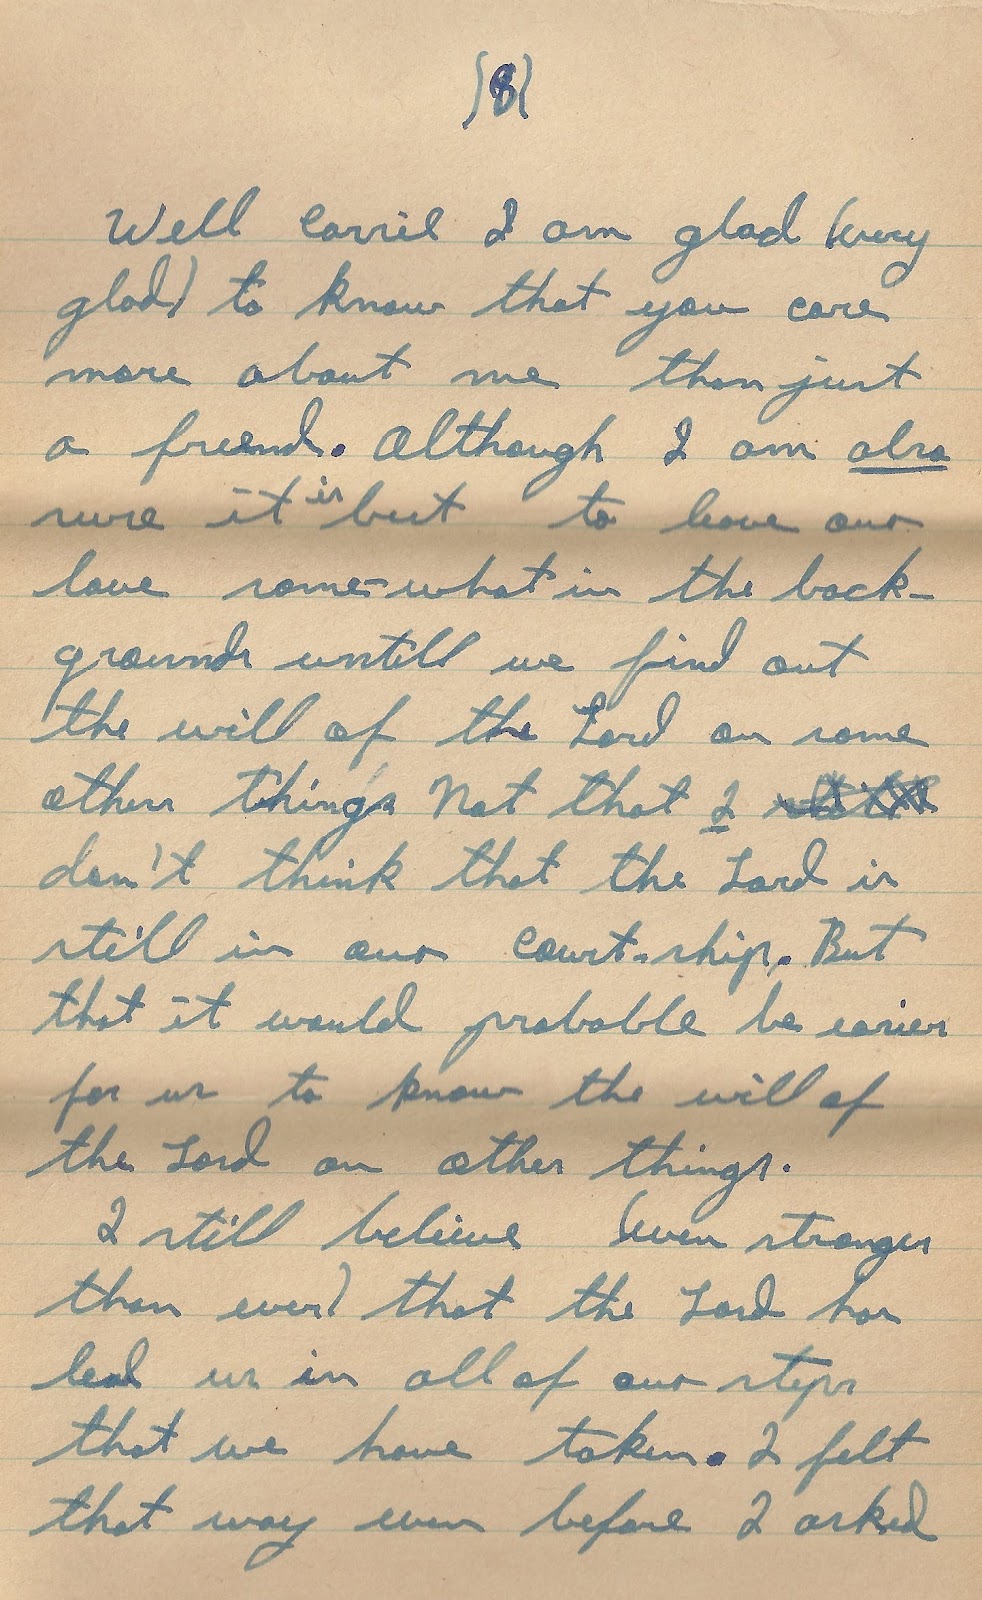 (8)
Well Carrie I am glad (very
glad) to know that you care
more about me than just
a friend. Although I am also
sure it is best to leave our
love some-what in the back-
grounds untill we find out
the will of the Lord on some
others things Not that I
don't think that the Lord is
still in our court-ship. But
that it would probable be easier
for us to know the will of
the Lord on other things.
I still believe (even stronger
than ever) that the Lord has
lead us in all of our steps
that we have taken. I felt
that way even before I asked